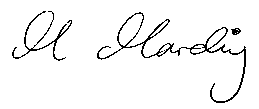 M Harding